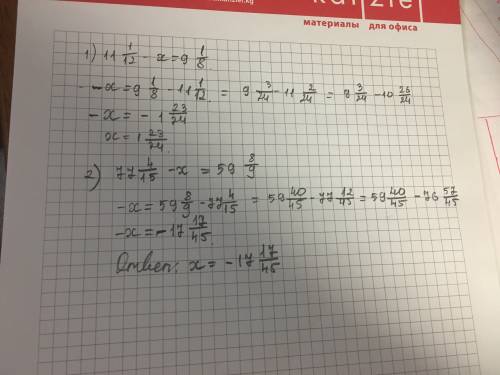 kanzler.kg
материалы для офиса
1) 11 1/12 - x = 9 1/8
-x = 9 1/8 - 11 1/12 = 9 3/24 - 11 2/24 = 9 3/24 - 10 26/24
-x = - 1 23/24
x = 1 23/24
2) 77 4/15 - x = 59 8/9
-x = 59 8/9 - 77 4/15 = 59 40/45 - 77 12/45 = 59 40/45 - 76 57/45
-x = - 17 17/45
Ответ: x = - 17 17/45